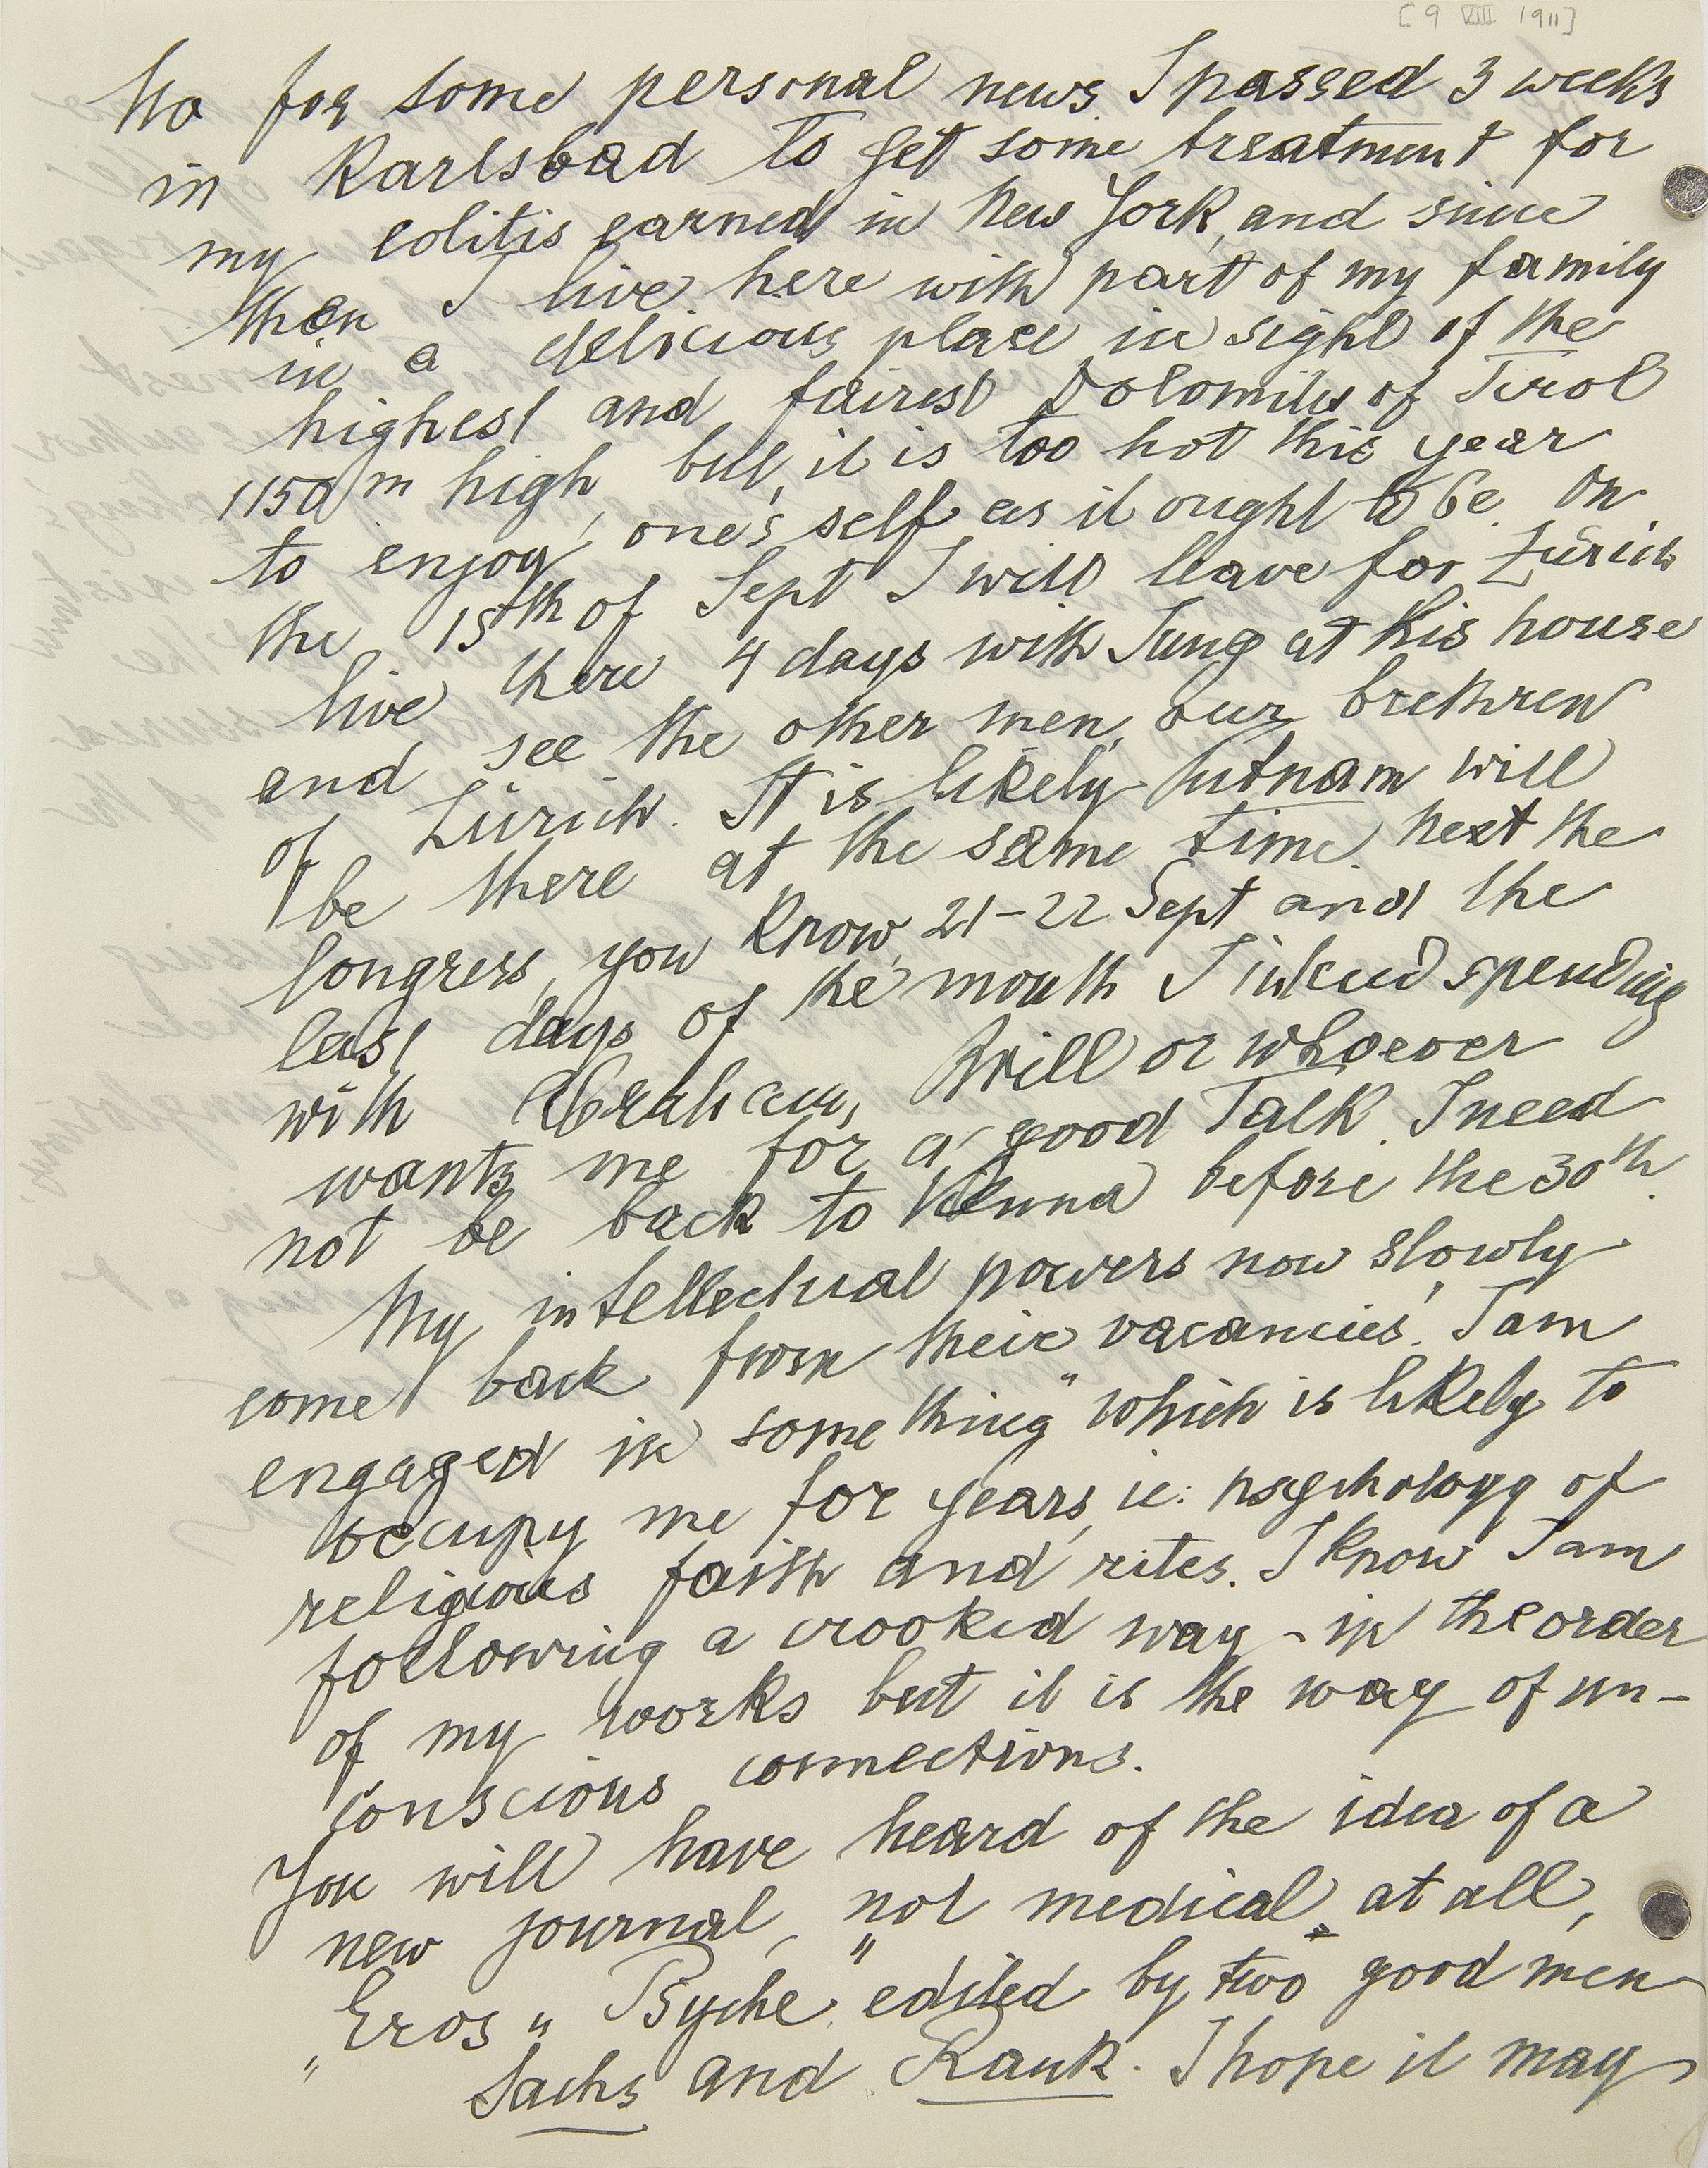 [9 VIII 1911]
No for some personal news. I passed 3 weeks
in Karlsbad to get some treatment for
my colitis earned in New York, and since
then I live here with part of my family
in a delicious place in sight of the
highest and fairest Dolomites of Tirol
1150 m high, but, it is too hot this year
to enjoy one's self as it ought to be. On
the 15th of Sept I will leave for Zürich
live there 4 days with Jung at his house
and see the other men, our brethren
of Zürich. It is likely Putnam will
be there at the same time. Next the
Congress, you know, 21–22 Sept and the
last days of the month I intend spending
with Abraham, Brill or whoever
wants me for a good Talk. I need
not be back to Vienna before the 30th.
My intellectual powers now slowly
come back from their vacancies. I am
engaged in something" which is likely to
occupy me for years, ie: psychology of
religious faith and rites. I know I am
following a crooked way - in the order
of my works but it is the way of un-
conscious connections.
You will have heard of the idea of a
new journal, not medical at all,
„Eros „ Psyche" edited by two good men
Sachs and Rank. I hope it may